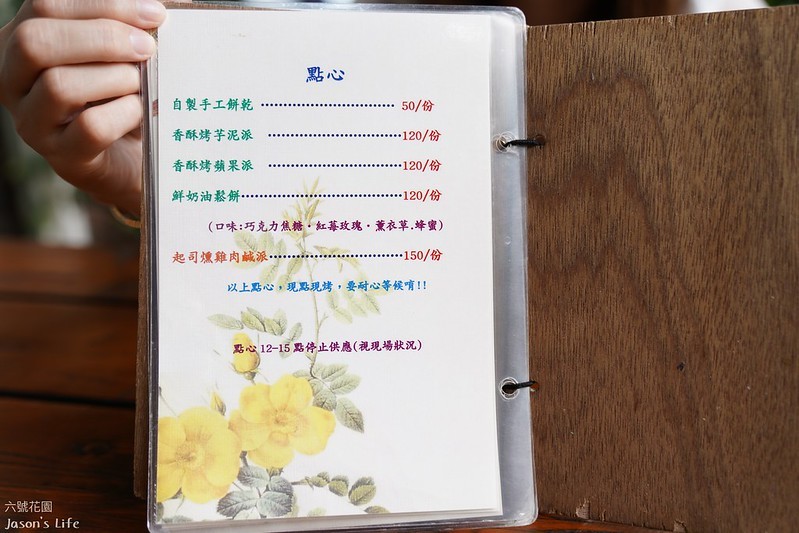 點心
自製手工餅乾 ································ 50/份
香酥烤芋泥派 ································120/份
香酥烤蘋果派 ································120/份
鮮奶油鬆餅······································120/份
(口味:巧克力焦糖‧紅莓玫瑰‧薰衣草.蜂蜜)
起司燻雞肉鹹派································150/份
以上點心，現點現烤，要耐心等候唷!!
點心 12-15 點停止供應(視現場狀況)
六號花園
Jason's Life